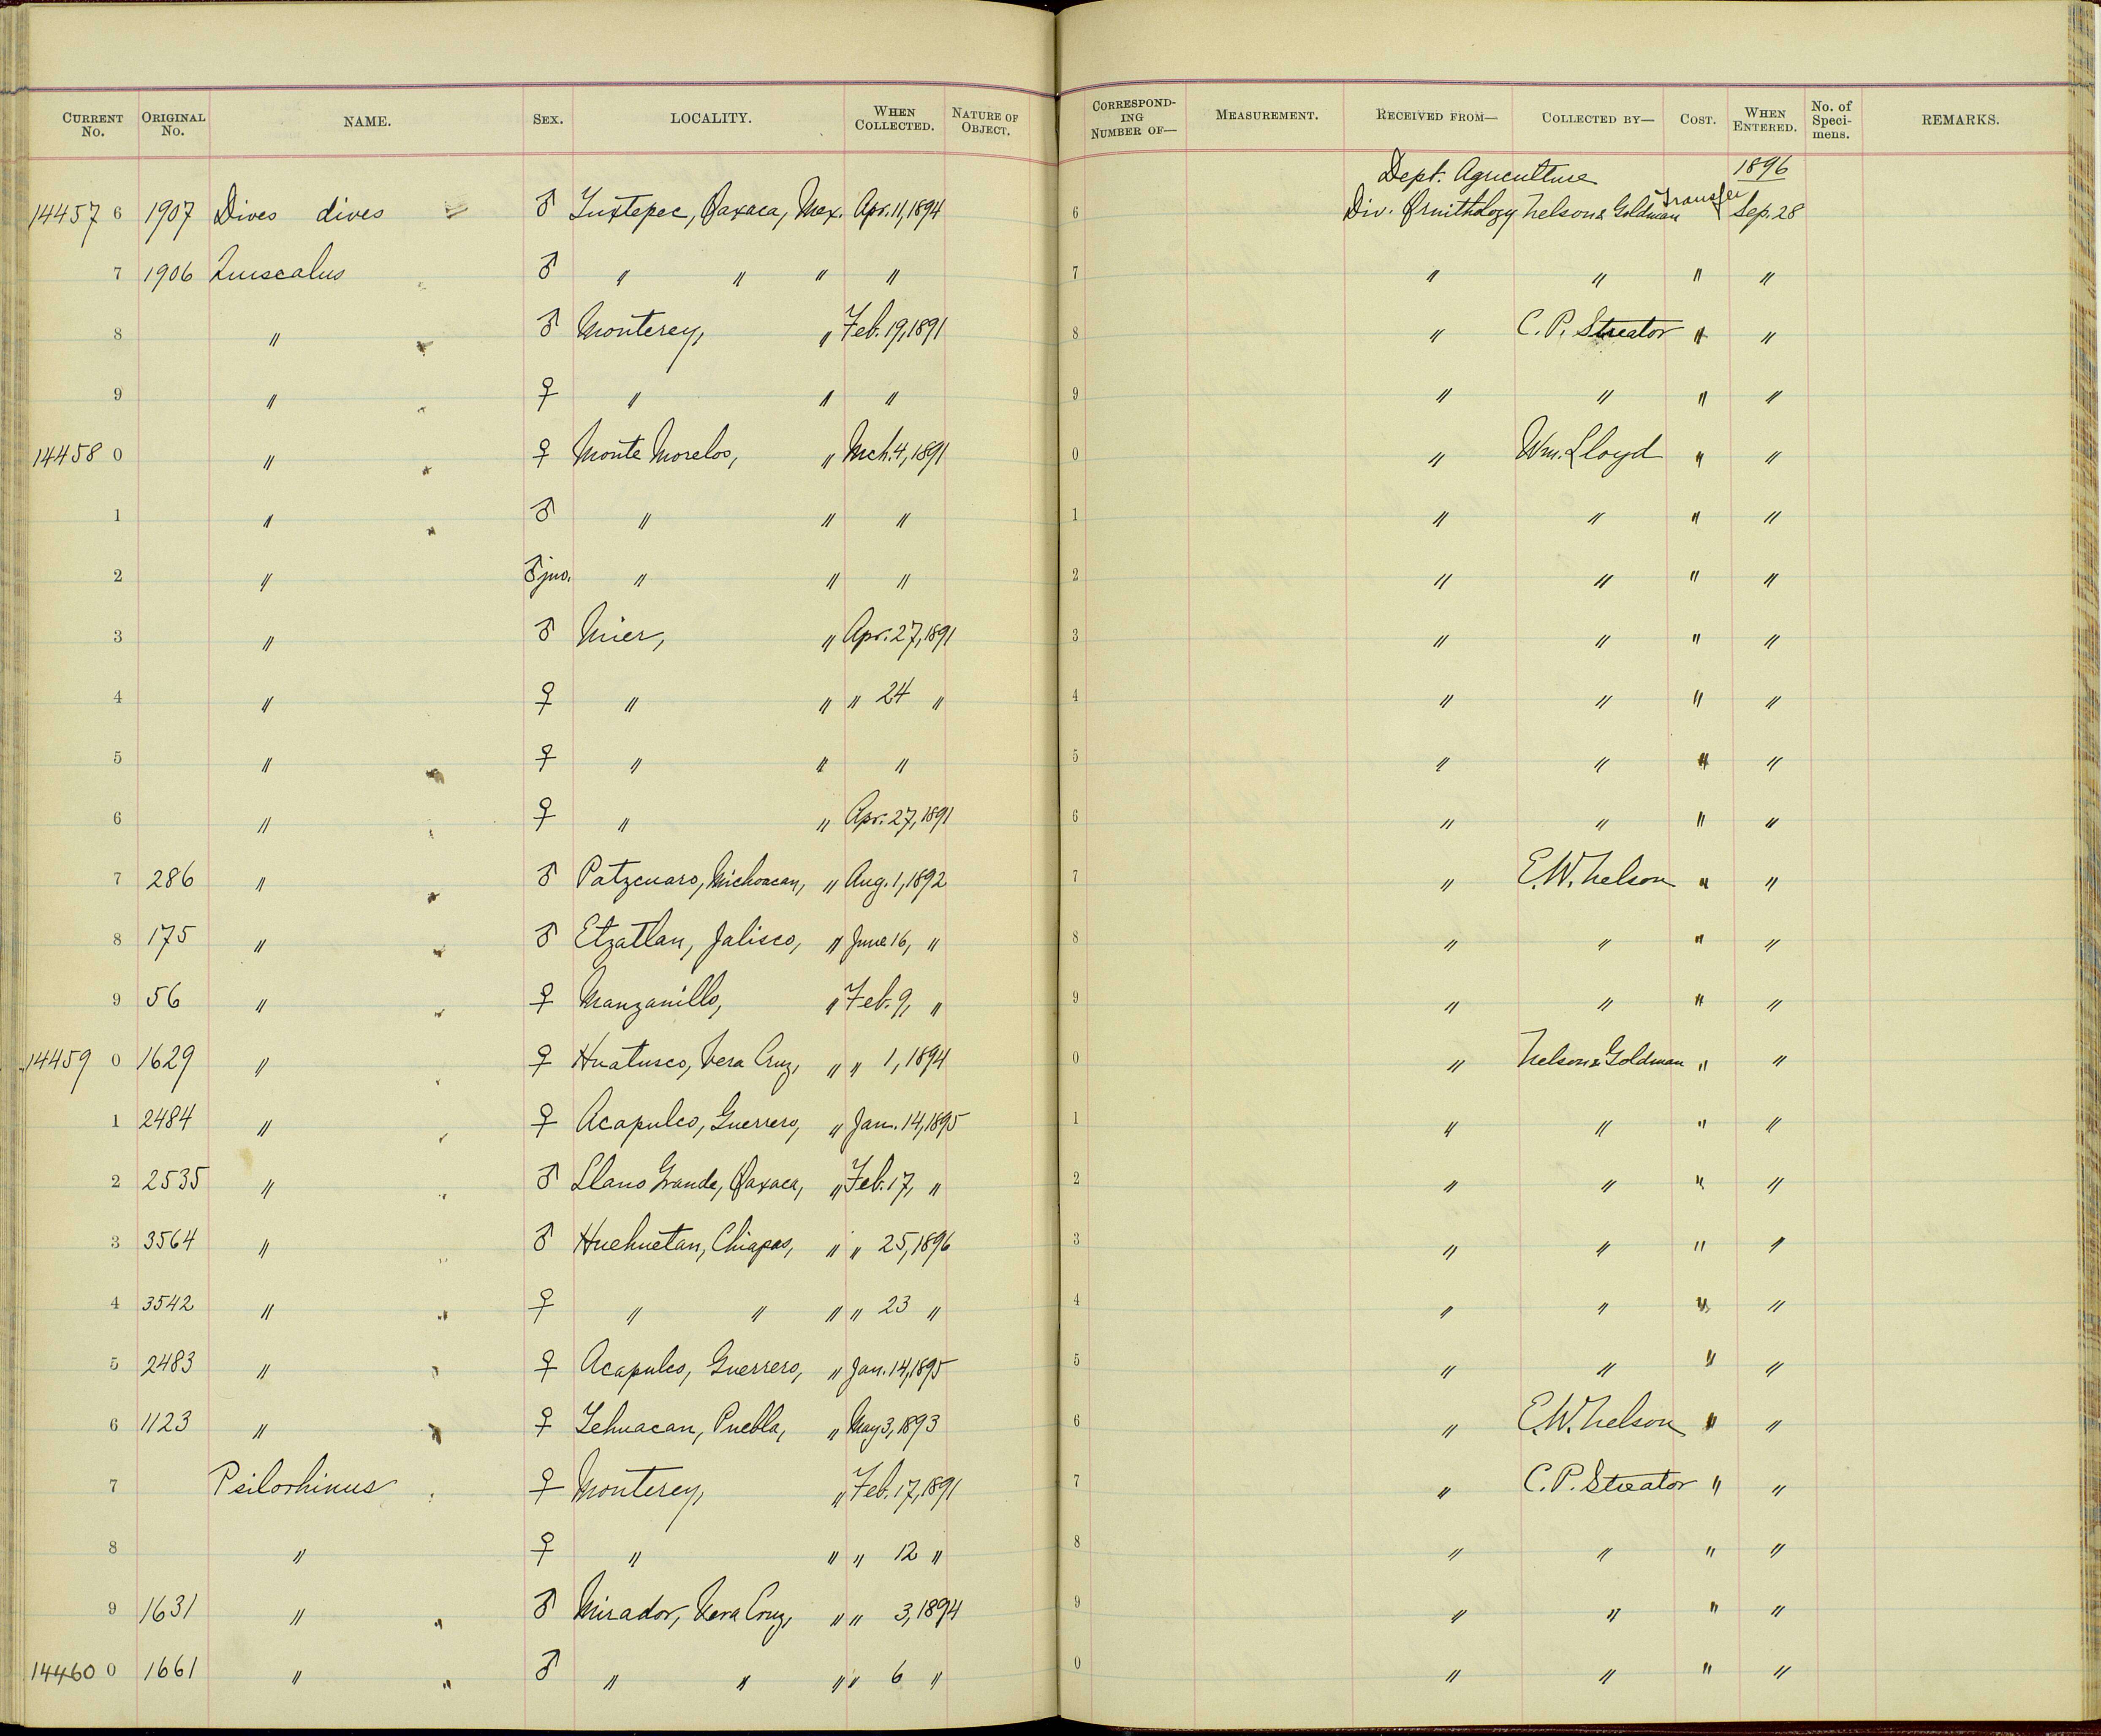 CURRENT No. ORIGINAL No. NAME. SEX. LOCALITY. WHEN COLLECTED. NATURE OF OBJECT. CORRESPONDING NUMBER OF— MEASUREMENT. RECEIVED FROM— COLLECTED BY— COST. WHEN ENTERED. No. of Specimens. REMARKS.
Dept. Agriculture 1896
14457 6 1907 Dives dives ♂ Tuxtepec, Oaxaca, Mex. Apr. 11, 1894 6 Div. Ornithology Nelson & Goldman Transfer Sep. 28
7 1906 Quiscalus ♂ " " " " 7 " " " "
8 " ♂ Monterey, " Feb. 19, 1891 8 " C. P. Streator " "
9 " ♀ " " " 9 " " " "
14458 0 " ♀ Monte Morelos, " Mch. 4, 1891 0 " Wm. Lloyd " "
1 " ♂ " " " 1 " " " "
2 " ♂ juv. " " " 2 " " " "
3 " ♂ Mier, " Apr. 27, 1891 3 " " " "
4 " ♀ " " " 24 " 4 " " " "
5 " ♀ " " " 5 " " " "
6 " ♀ " " Apr. 27, 1891 6 " " " "
7 286 " ♂ Patzcuaro, Michoacan, " Aug. 1, 1892 7 " E. W. Nelson " "
8 175 " ♂ Etzatlan, Jalisco, " June 16, " 8 " " " "
9 56 " ♀ Manzanillo, " Feb. 9, " 9 " " " "
14459 0 1629 " ♀ Huatusco, Vera Cruz, " " 1, 1894 0 " Nelson & Goldman " "
1 2484 " ♀ Acapulco, Guerrero, " Jan. 14, 1895 1 " " " "
2 2535 " ♂ Llano Grande, Oaxaca, " Feb. 17, " 2 " " " "
3 3564 " ♂ Huehuetan, Chiapas, " " 25, 1896 3 " " " "
4 3542 " ♀ " " " " 23 " 4 " " " "
5 2483 " ♀ Acapulco, Guerrero, " Jan. 14, 1895 5 " " " "
6 1123 " ♀ Tehuacan, Puebla, " May 3, 1893 6 " E. W. Nelson " "
7 Psilorhinus ♀ Monterey, " Feb. 17, 1891 7 " C. P. Streator " "
8 " ♀ " " " 12 " 8 " " " "
9 1631 " ♂ Mirador, Vera Cruz, " " 3, 1894 9 " " " "
14460 0 1661 " ♂ " " " " 6 " 0 " " " "